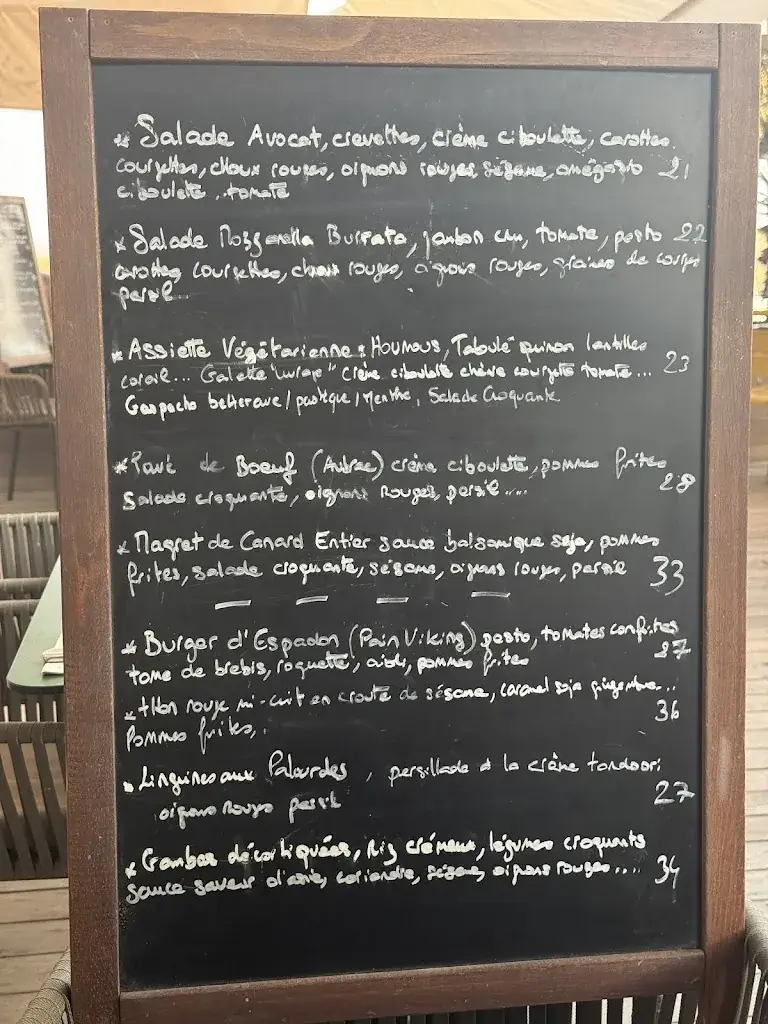 * Salade Avocat, crevettes, crème ciboulette, carottes
courgettes, choux rouges, oignons rouges, sésame, 21
ciboulette.. tomate
* Salade Mozzarella Burrata, jambon cru, tomate, pesto 22
carottes courgettes, choux rouges, oignons rouges, graines de courges
persil
* Assiette Végétarienne : Houmous, Taboulé quinoa lentilles
corail... Galette "wrap" crème ciboulette chèvre courgette tomate... 23
Gaspacho betterave / pastèque / Menthe, Salade Croquante
* Pavé de Boeuf (Aubrac) crème ciboulette, pommes frites
Salade croquante, oignons Rouges, persil.... 28
* Magret de Canard Entier sauce balsamique soja, pommes
frites, salade croquante, sésame, oignons rouges, persil 33
* Burger d'Espadon (Pain Viking) pesto, tomates confites
tome de brebis, roquette, aioli, pommes frites 27
* thon rouge mi-cuit en croute de sésame, caramel soja gingembre...
Pommes frites,. 36
* Linguines aux Palourdes, persillade à la crème tandoori
oignons rouges persil 27
* Gambas décortiquées, Riz crémeux, légumes croquants
Sauce saveur d'asie, coriandre, sésame, oignons rouges.... 34